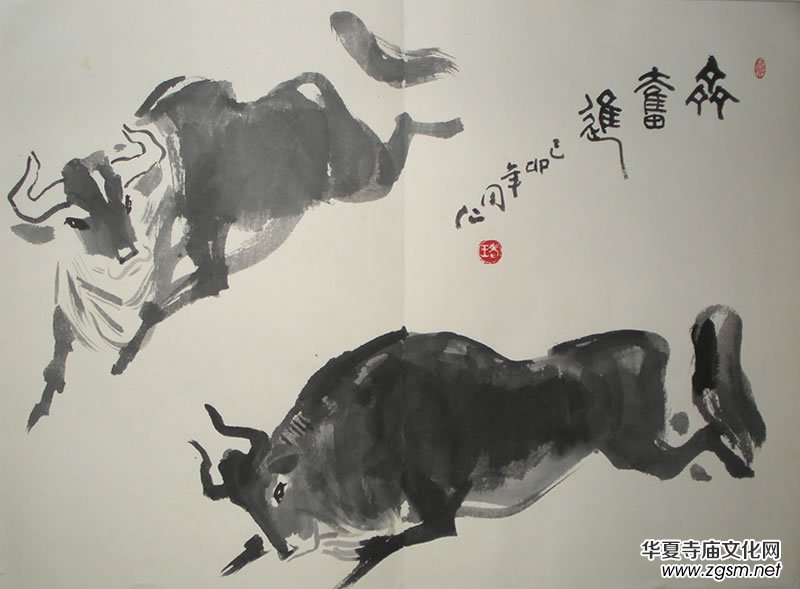 齊奮進
己卯年
华夏寺庙文化网
www.zgsm.net